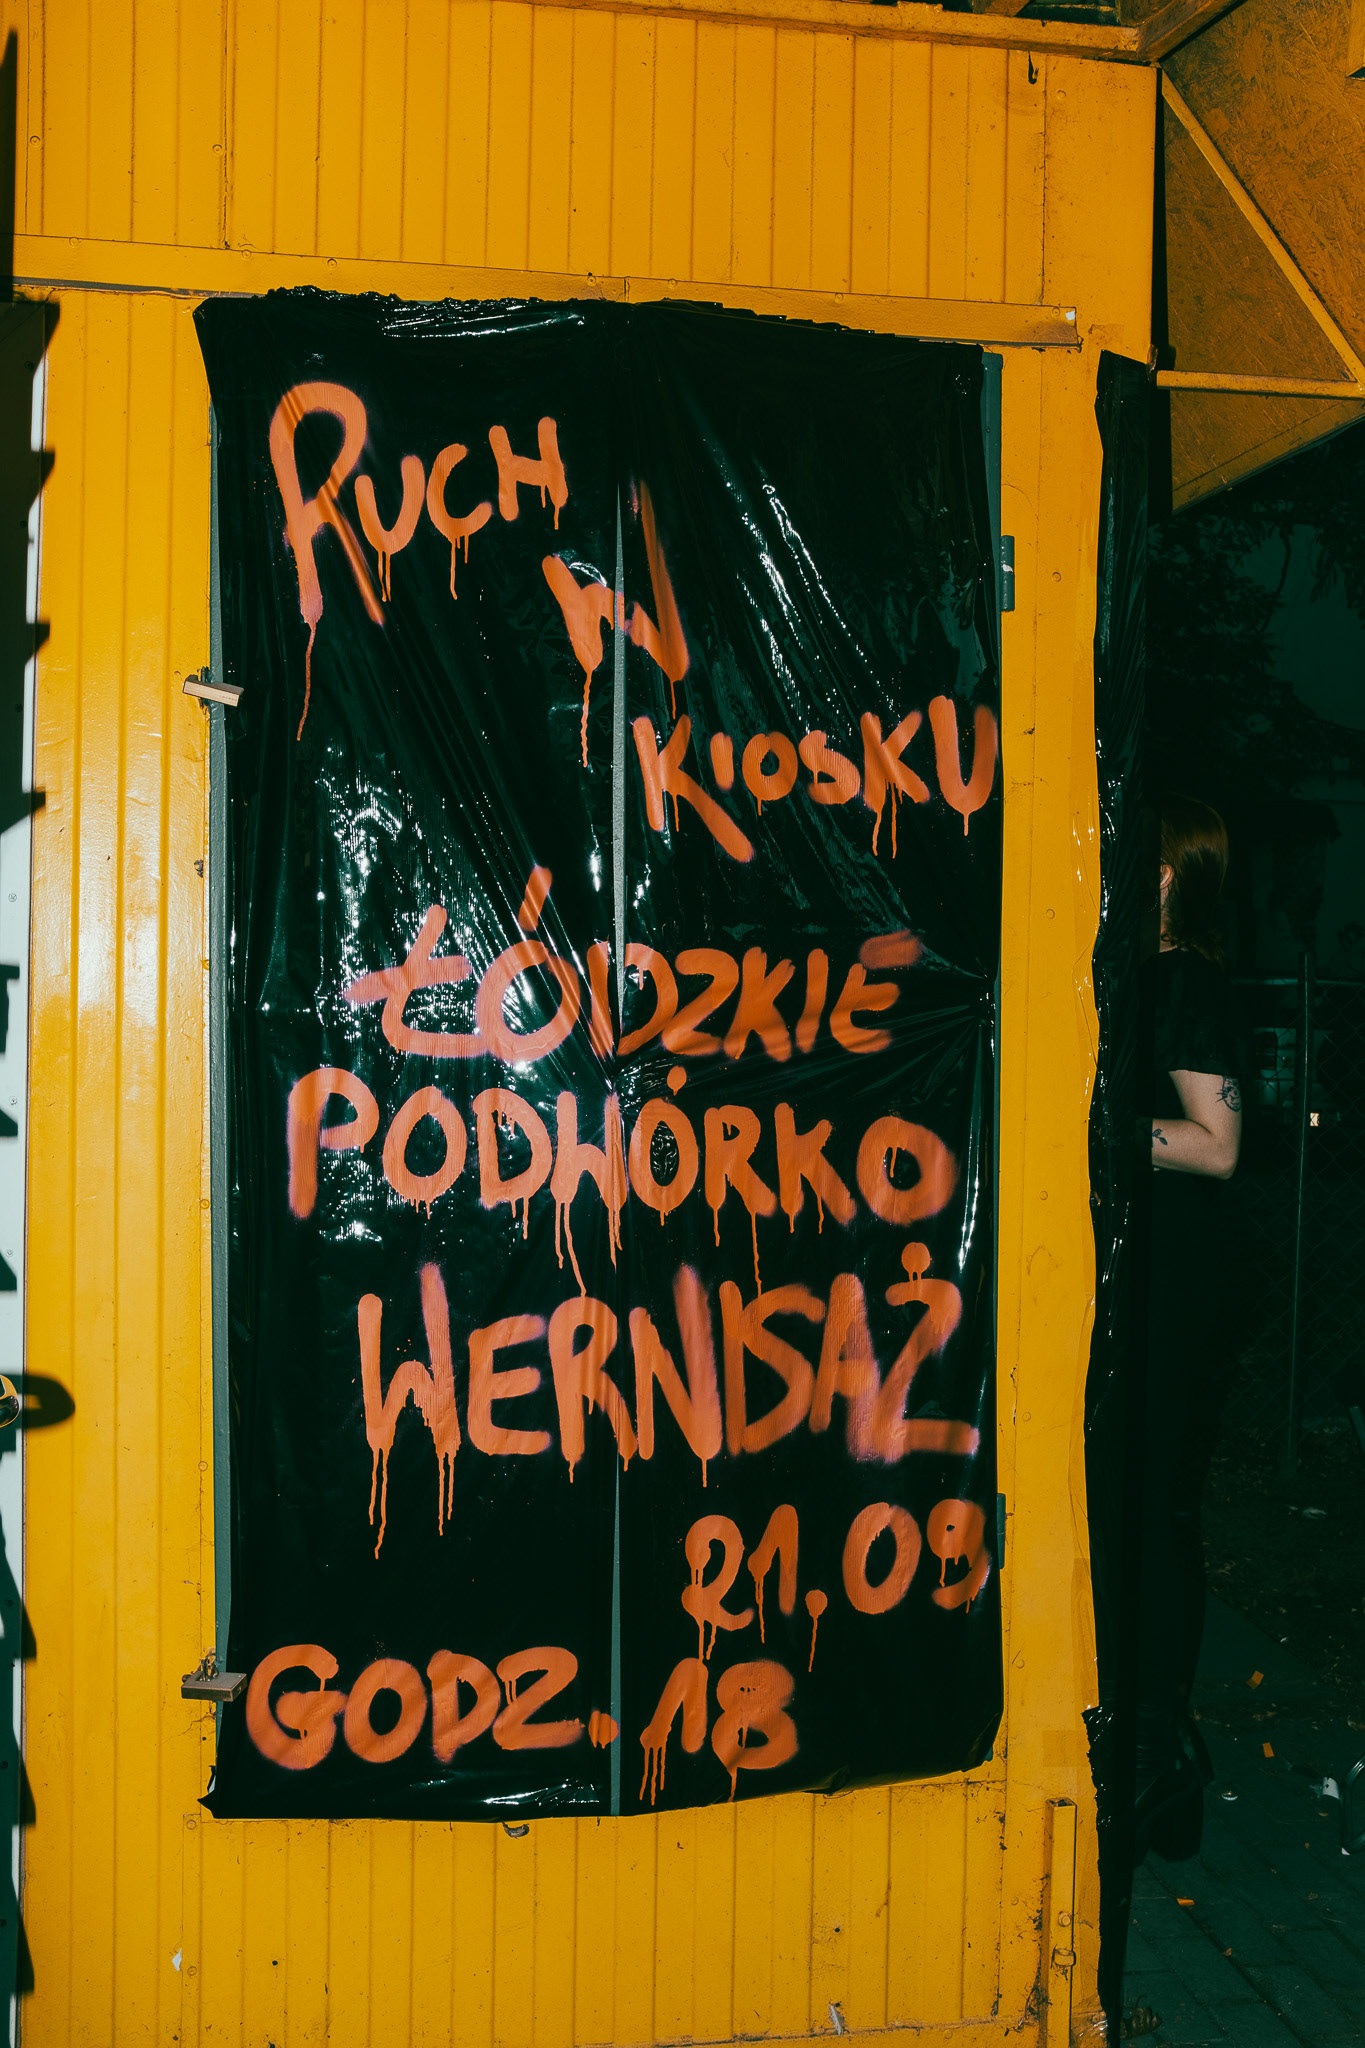 RUCH
W
KIOSKU
ŁÓDZKIE
PODWÓRKO
WERNISAŻ
21.09
GODZ. 18